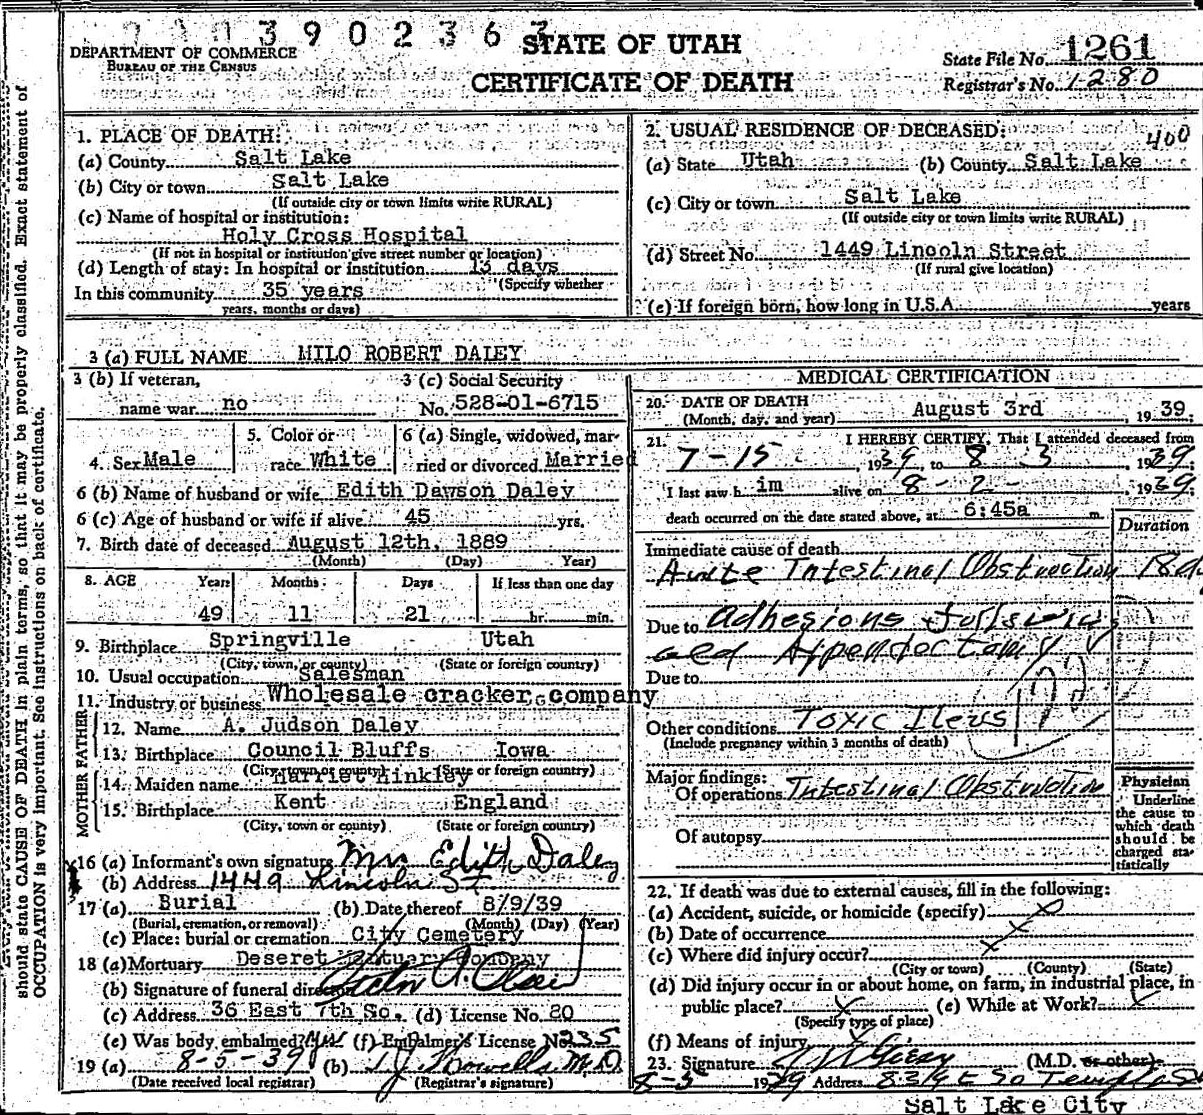 390236
DEPARTMENT OF COMMERCE
BUREAU OF THE CENSUS
STATE OF UTAH
CERTIFICATE OF DEATH
State File No. 1261
Registrar's No. 1280
should state CAUSE OF DEATH in plain terms, so that it may be properly classified. Exact statement of
OCCUPATION is very important. See instructions on back of certificate.
1. PLACE OF DEATH:
(a) County Salt Lake
(b) City or town Salt Lake
(If outside city or town limits write RURAL)
(c) Name of hospital or institution:
Holy Cross Hospital
(If not in hospital or institution give street number or location)
(d) Length of stay: In hospital or institution 13 days
(Specify whether
In this community 35 years
years, months or days)
2. USUAL RESIDENCE OF DECEASED: 400
(a) State Utah (b) County Salt Lake
(c) City or town Salt Lake
(If outside city or town limits write RURAL)
(d) Street No. 1449 Lincoln Street
(If rural give location)
(e) If foreign born, how long in U.S.A. years
3 (a) FULL NAME MILO ROBERT DALEY
3 (b) If veteran,
name war no
3 (c) Social Security
No. 528-01-6715
4. Sex Male
5. Color or
race White
6 (a) Single, widowed, mar-
ried or divorced Married
6 (b) Name of husband or wife Edith Dawson Daley
6 (c) Age of husband or wife if alive 45 yrs.
7. Birth date of deceased August 12th, 1889
(Month) (Day) Year)
8. AGE Years Months Days If less than one day
49 11 21 hr. min.
9. Birthplace Springville Utah
(City, town, or county) (State or foreign country)
10. Usual occupation Salesman
11. Industry or business Wholesale cracker company
FATHER
12. Name A. Judson Daley
13. Birthplace Council Bluffs Iowa
(City, town or county) (State or foreign country)
MOTHER
14. Maiden name Harriet Hinkley
15. Birthplace Kent England
(City, town or county) (State or foreign country)
16 (a) Informant's own signature Mrs Edith Daley
(b) Address 1449 Lincoln St
17 (a) Burial (b) Date thereof 8/9/39
(Burial, cremation, or removal) (Month) (Day) (Year)
(c) Place: burial or cremation City Cemetery
18 (a) Mortuary Deseret Mortuary Company
(b) Signature of funeral director
(c) Address 36 East 7th So. (d) License No. 20
(e) Was body embalmed? (f) Embalmer's License No. 235
19 (a) 8-5-39 (b) M.D.
(Date received local registrar) (Registrar's signature)
MEDICAL CERTIFICATION
20. DATE OF DEATH
(Month, day, and year) August 3rd, 1939
21. I HEREBY CERTIFY, That I attended deceased from
7-15, 1939 to 8 3, 1939
I last saw h im alive on 8-2-, 1939
death occurred on the date stated above, at 6:45a m.
Duration
Immediate cause of death
Acute Intestinal Obstruction 18 da
Due to Adhesions following
old Appendectomy
Due to
Other conditions Toxic Ileus
(Include pregnancy within 3 months of death)
Major findings:
Of operations Intestinal Obstruction
Of autopsy
Physician
Underline
the cause to
which death
should be
charged sta-
tistically
22. If death was due to external causes, fill in the following:
(a) Accident, suicide, or homicide (specify) x
(b) Date of occurrence x
(c) Where did injury occur? x
(City or town) (County) (State)
(d) Did injury occur in or about home, on farm, in industrial place, in
public place? x (e) While at Work? x
(Specify type of place)
(f) Means of injury
23. Signature (M.D. or other)
8-5 1939 Address So Temple St
Salt Lake City